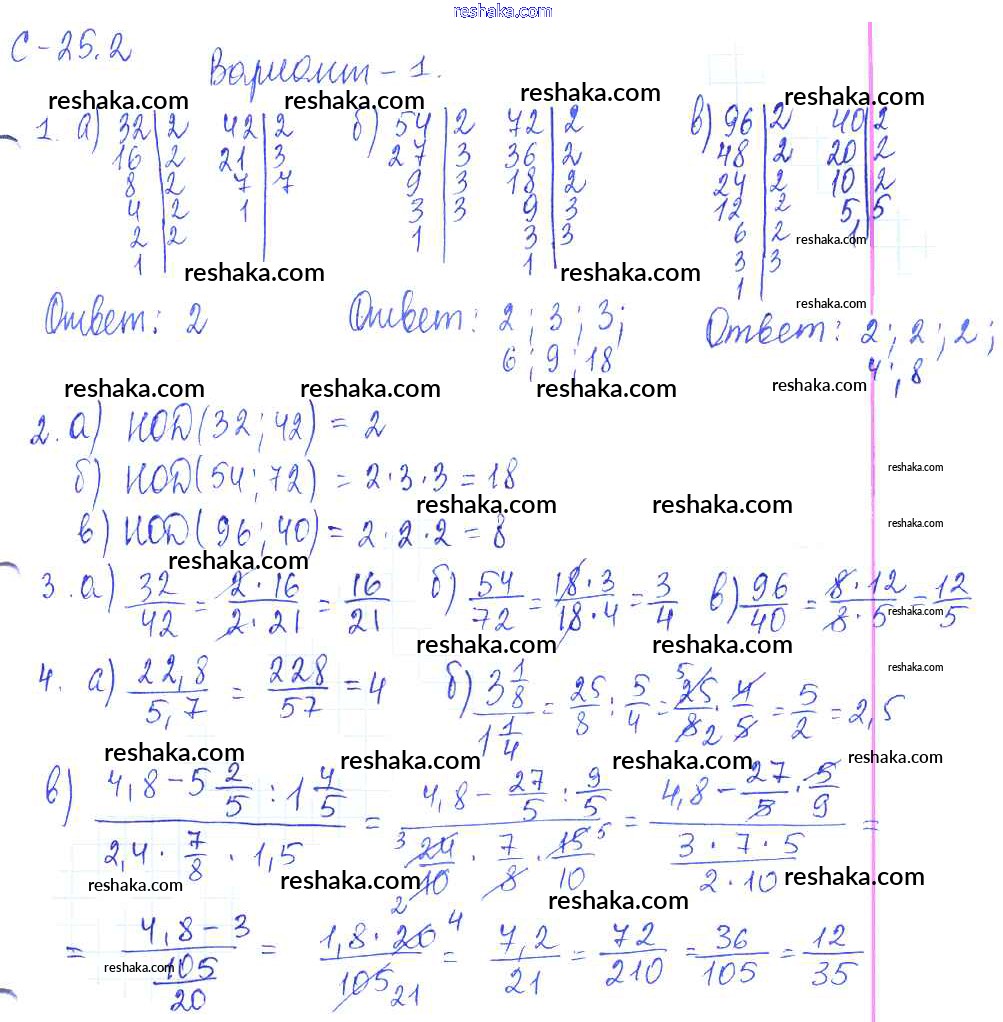 reshaka.com
С-25.2
Вариант-1.
reshaka.com reshaka.com reshaka.com reshaka.com
1. а) 32|2 42|2 б) 54|2 72|2 в) 96|2 40|2
16|2 21|3 27|3 36|2 48|2 20|2
8|2 7|7 9|3 18|2 24|2 10|2
4|2 1 3|3 9|3 12|2 5|5
2|2 1 3|3 6|2 1
1 1 3|3
1
reshaka.com reshaka.com reshaka.com
reshaka.com
Ответ: 2 Ответ: 2; 3; 3; Ответ: 2; 2; 2;
6; 9; 18 4; 8
reshaka.com reshaka.com reshaka.com reshaka.com
2. а) НОД(32; 42) = 2
б) НОД(54; 72) = 2·3·3 = 18
reshaka.com
reshaka.com reshaka.com
в) НОД(96; 40) = 2·2·2 = 8
reshaka.com
reshaka.com
3. а) 32/42 = 2·16/2·21 = 16/21 б) 54/72 = 18·3/18·4 = 3/4 в) 96/40 = 8·12/8·5 = 12/5
reshaka.com
reshaka.com reshaka.com
reshaka.com
4. а) 22,8/5,7 = 228/57 = 4 б) 3 1/8 / 1 1/4 = 25/8 : 5/4 = 5 25/8 2 · 4/5 = 5/2 = 2,5
reshaka.com reshaka.com reshaka.com reshaka.com
в) 4,8 - 5 2/5 : 1 4/5 / 2,4 · 7/8 · 1,5 = 4,8 - 27/5 : 9/5 / 3 24/10 · 7/8 · 15/10 5 = 4,8 - 27/5 · 5/9 / 3·7·5/2·10 =
reshaka.com reshaka.com reshaka.com reshaka.com
= 4,8 - 3 / 105/20 = 1,8 · 20 4 / 105 21 = 7,2/21 = 72/210 = 36/105 = 12/35
2
reshaka.com